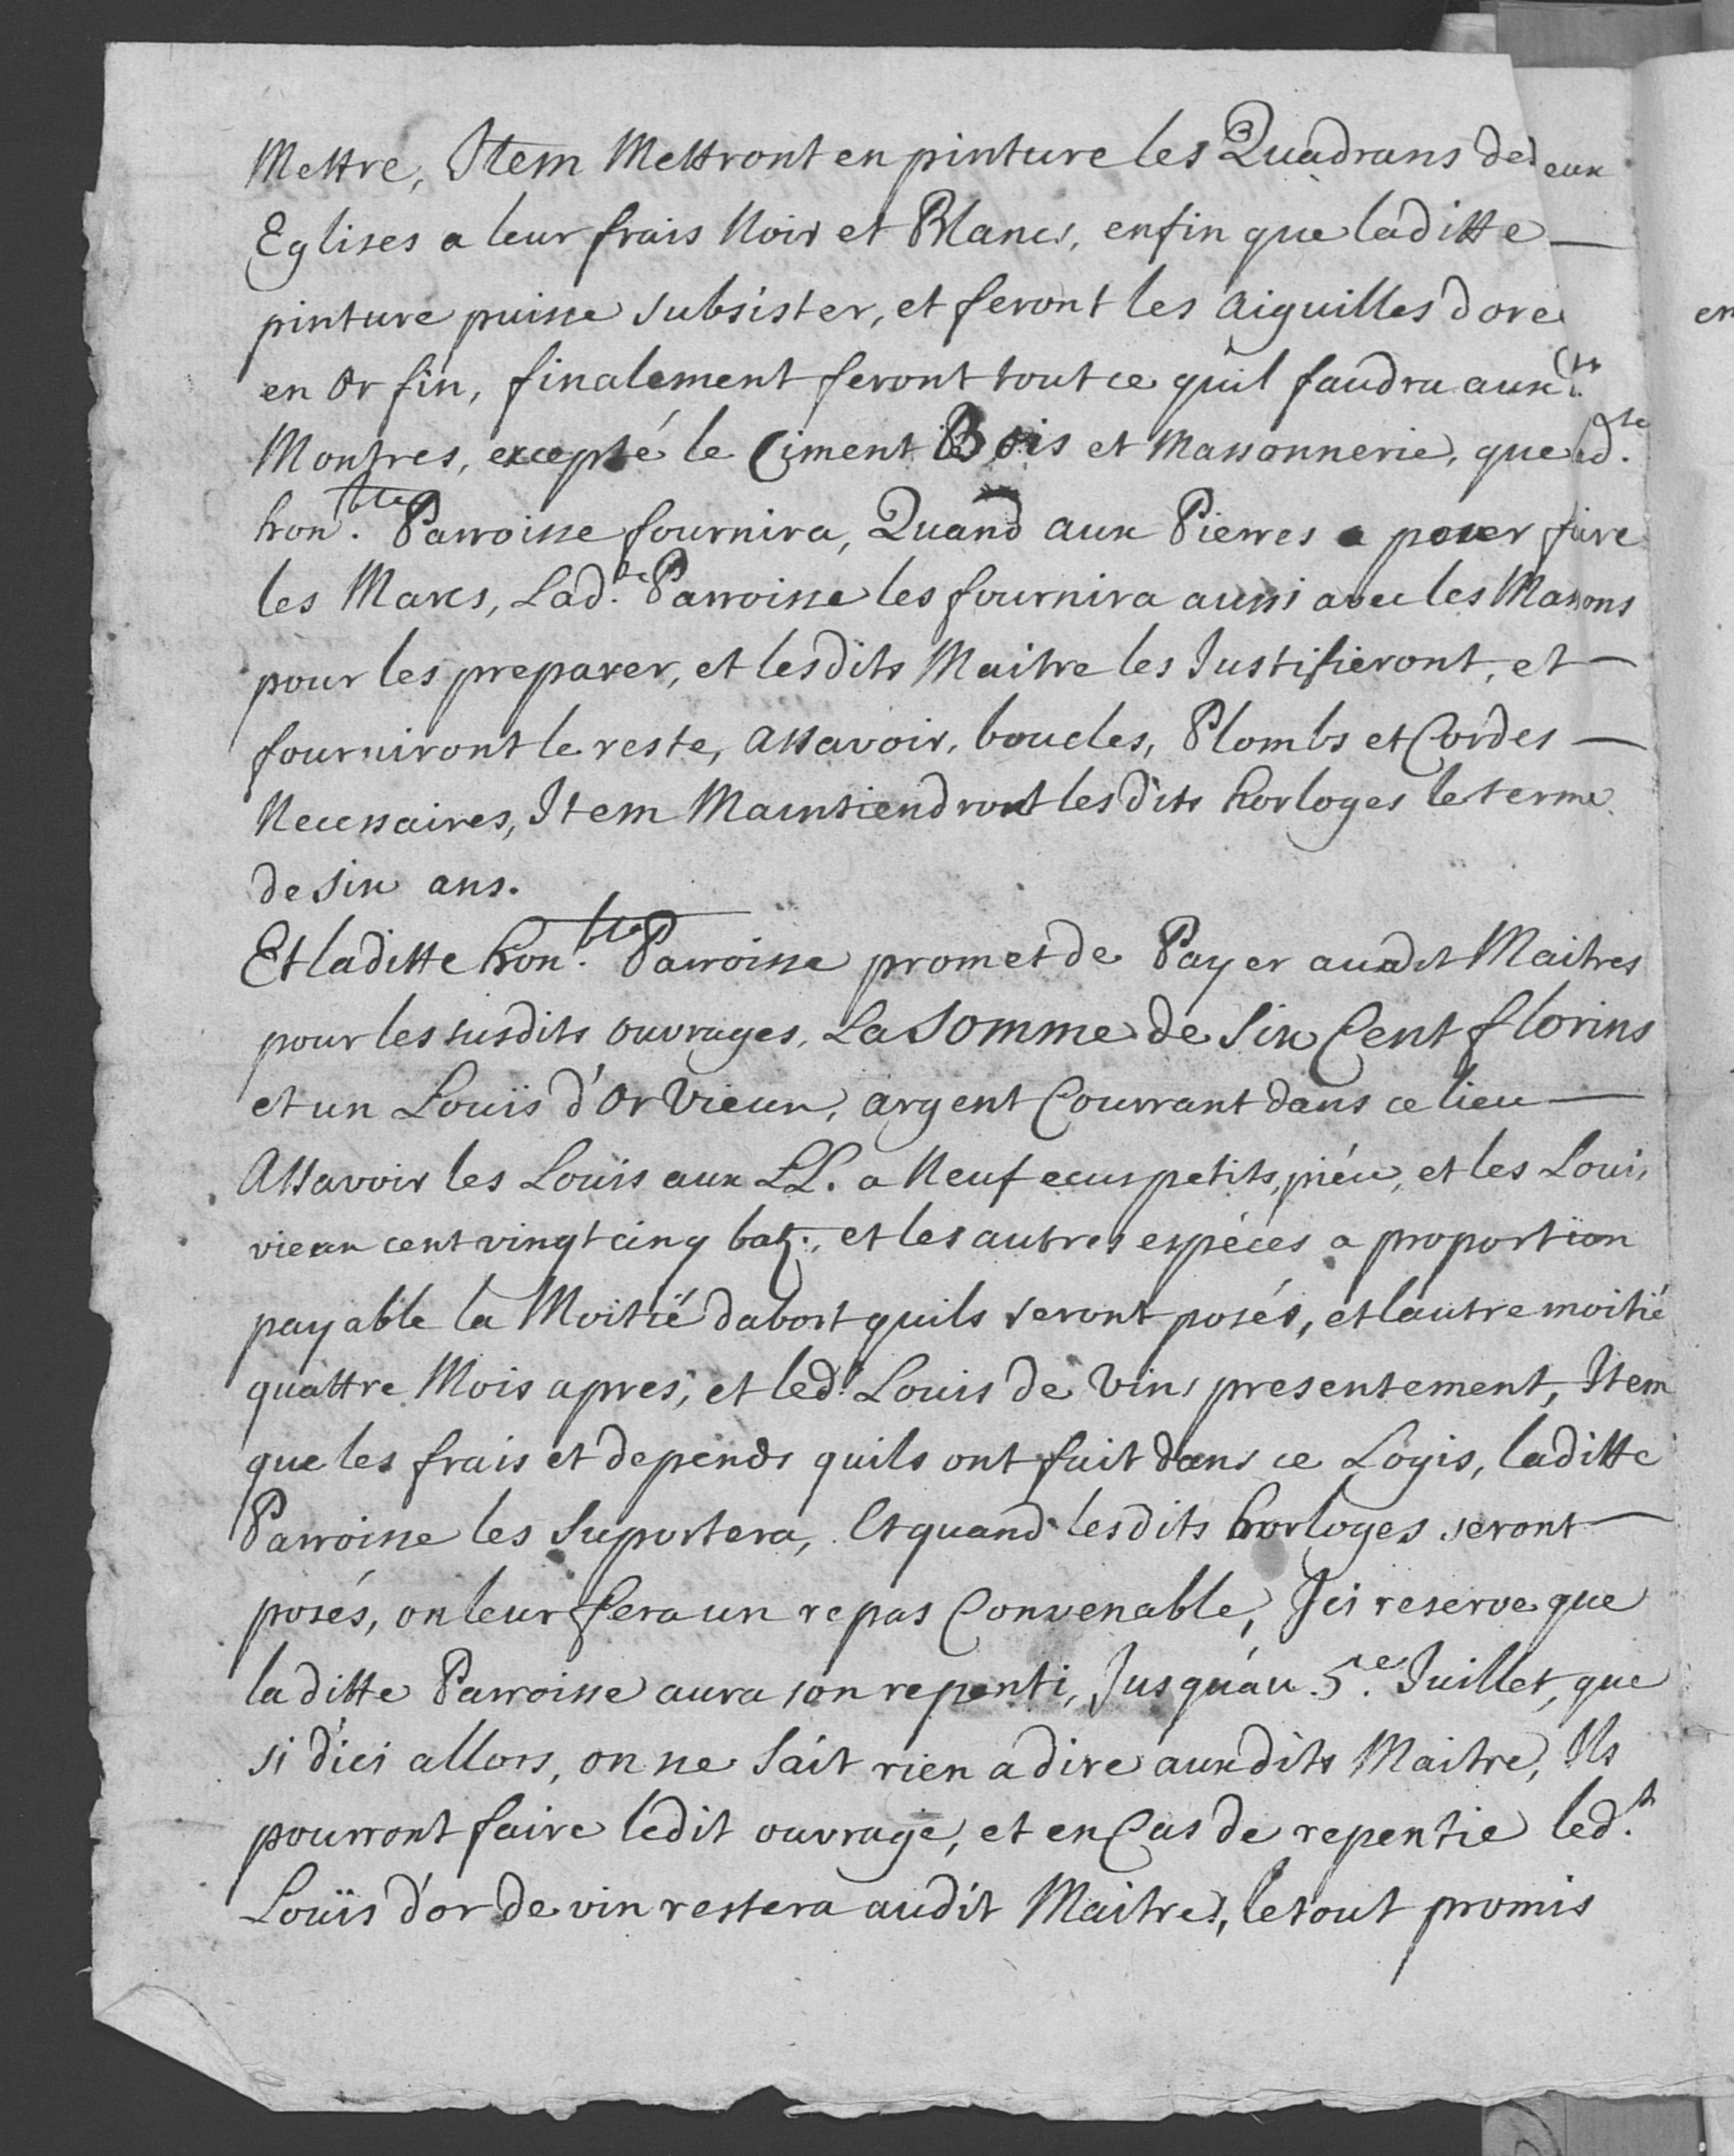 Mettre, Item Mettront en pinture les Quadrans de deux
Eglises a leur frais Noir et Blancs, enfin que laditte
pinture puisse subsister, et feront les aiguilles dore
en Or fin, finalement feront tout ce quil faudra aux
Montres, excepté le Ciment Bois et Massonnerie, que lad.te
hon.ble Parroisse fournira, Quand aux Pierres a peser faire
les Marcs, Lad.te Parroisse les fournira aussi avec les Massons
pour les preparer, et lesdits Maitre les Justifieront, et
fourniront le reste, assavoir, boucles, Plombs et Cordes
Necessaires, Item Maintiendront lesdits horloges le terme
de six ans.
Et laditte hon.ble Parroisse promet de Payer audit Maitres
pour les susdits ouvrages, La Somme de Six Cent florins
et un Louïs d'Or Vieux, argent Courrant dans ce lieu
Assavoir les Louis aux LL. a Neuf ecus petits, piéce, et les Louis
vieux cent vingt cinq batz., et les autres espéces a proportion
payable la Moitié dabort quils seront posés, et lautre moitié
quattre Mois apres, et led.t Louis de Vins presentement, Item
que les frais et depends quils ont fait dans ce Logis, laditte
Parroisse les Suportera, Et quand lesdits horloges seront
posés, on leur fera un repas Convenable, Ici reserve que
laditte Parroisse aura son repenti, Jusqu'au 5.e Juillet, que
si d'ici allors, on ne fait rien a dire auxdits Maitre, Ils
pourront faire ledit ouvrage, et en Cas de repentie led.t
Louïs d'or de vin restera audit Maitres, le tout promis
en